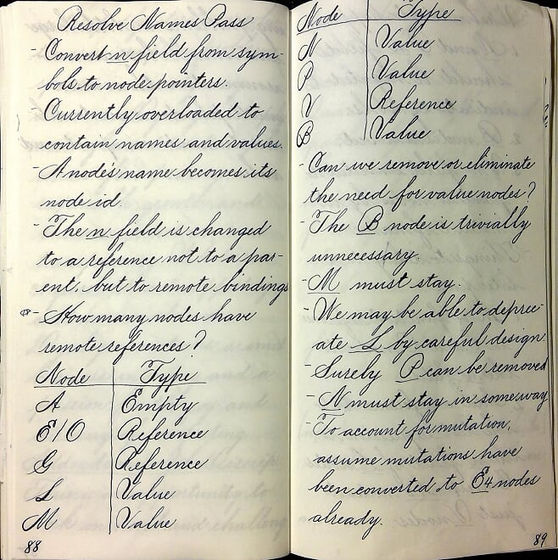 Resolve Names Pass
- Convert n field from sym-
bols to node pointers.
Currently overloaded to
contain names and values.
- A node's name becomes its
node id.
- The n field is changed
to a reference not to a par-
ent, but to remote bindings
- How many nodes have
remote references?
Node Type
A Empty
E/O Reference
G Reference
L Value
M Value
88
Node Type
N Value
P Value
V Reference
B Value
- Can we remove or eliminate
the need for value nodes?
- The B node is trivially
unnecessary.
- M must stay.
- We may be able to deprec-
ate L by careful design
- Surely P can be removed
- N must stay in some way
- To account for mutation,
assume mutations have
been converted to E4 nodes
already.
89